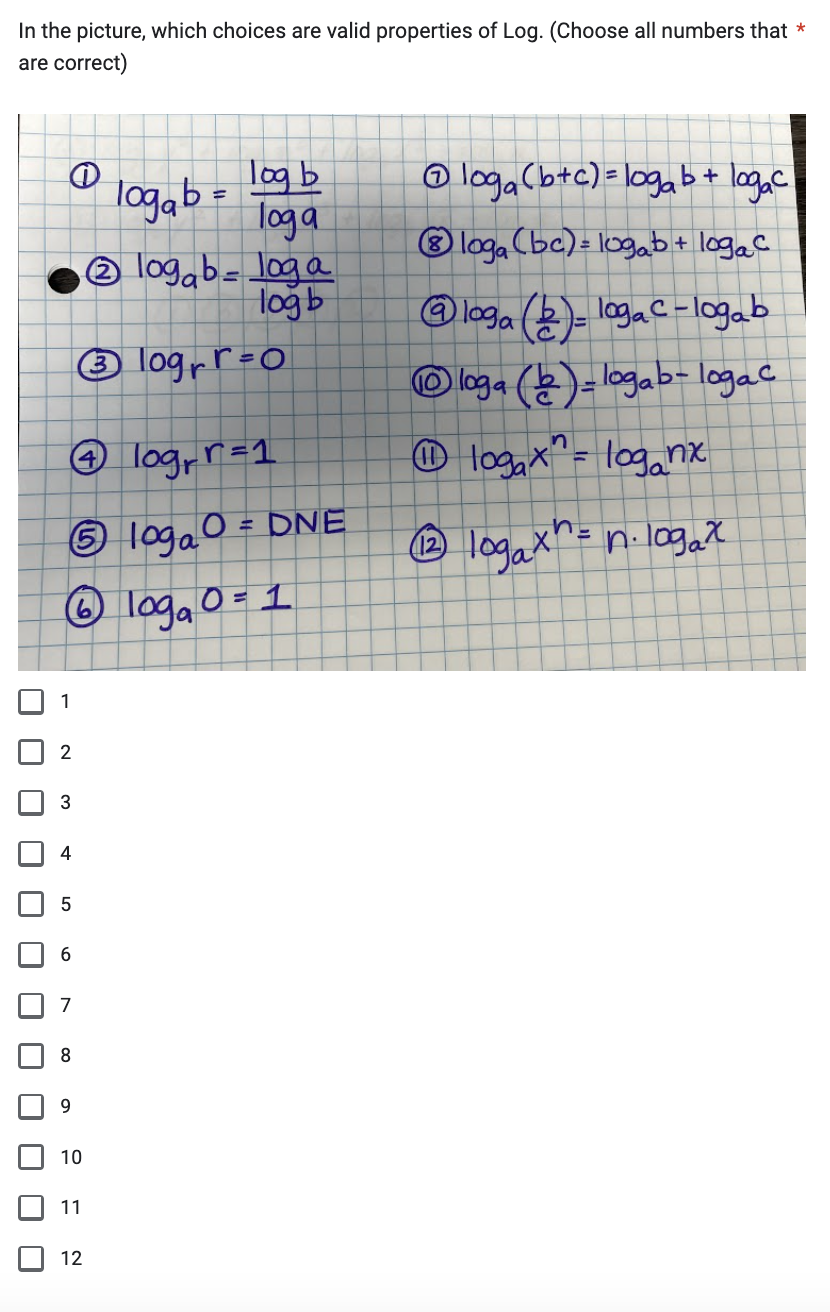 In the picture, which choices are valid properties of Log. (Choose all numbers that *
are correct)
① logₐb = log b / log a
② logₐb = log a / log b
③ logᵣr = 0
④ logᵣr = 1
⑤ logₐ0 = DNE
⑥ logₐ0 = 1
⑦ logₐ(b+c) = logₐb + logₐc
⑧ logₐ(bc) = logₐb + logₐc
⑨ logₐ(b/c) = logₐc - logₐb
⑩ logₐ(b/c) = logₐb - logₐc
⑪ logₐxⁿ = logₐnx
⑫ logₐxⁿ = n·logₐx
1
2
3
4
5
6
7
8
9
10
11
12